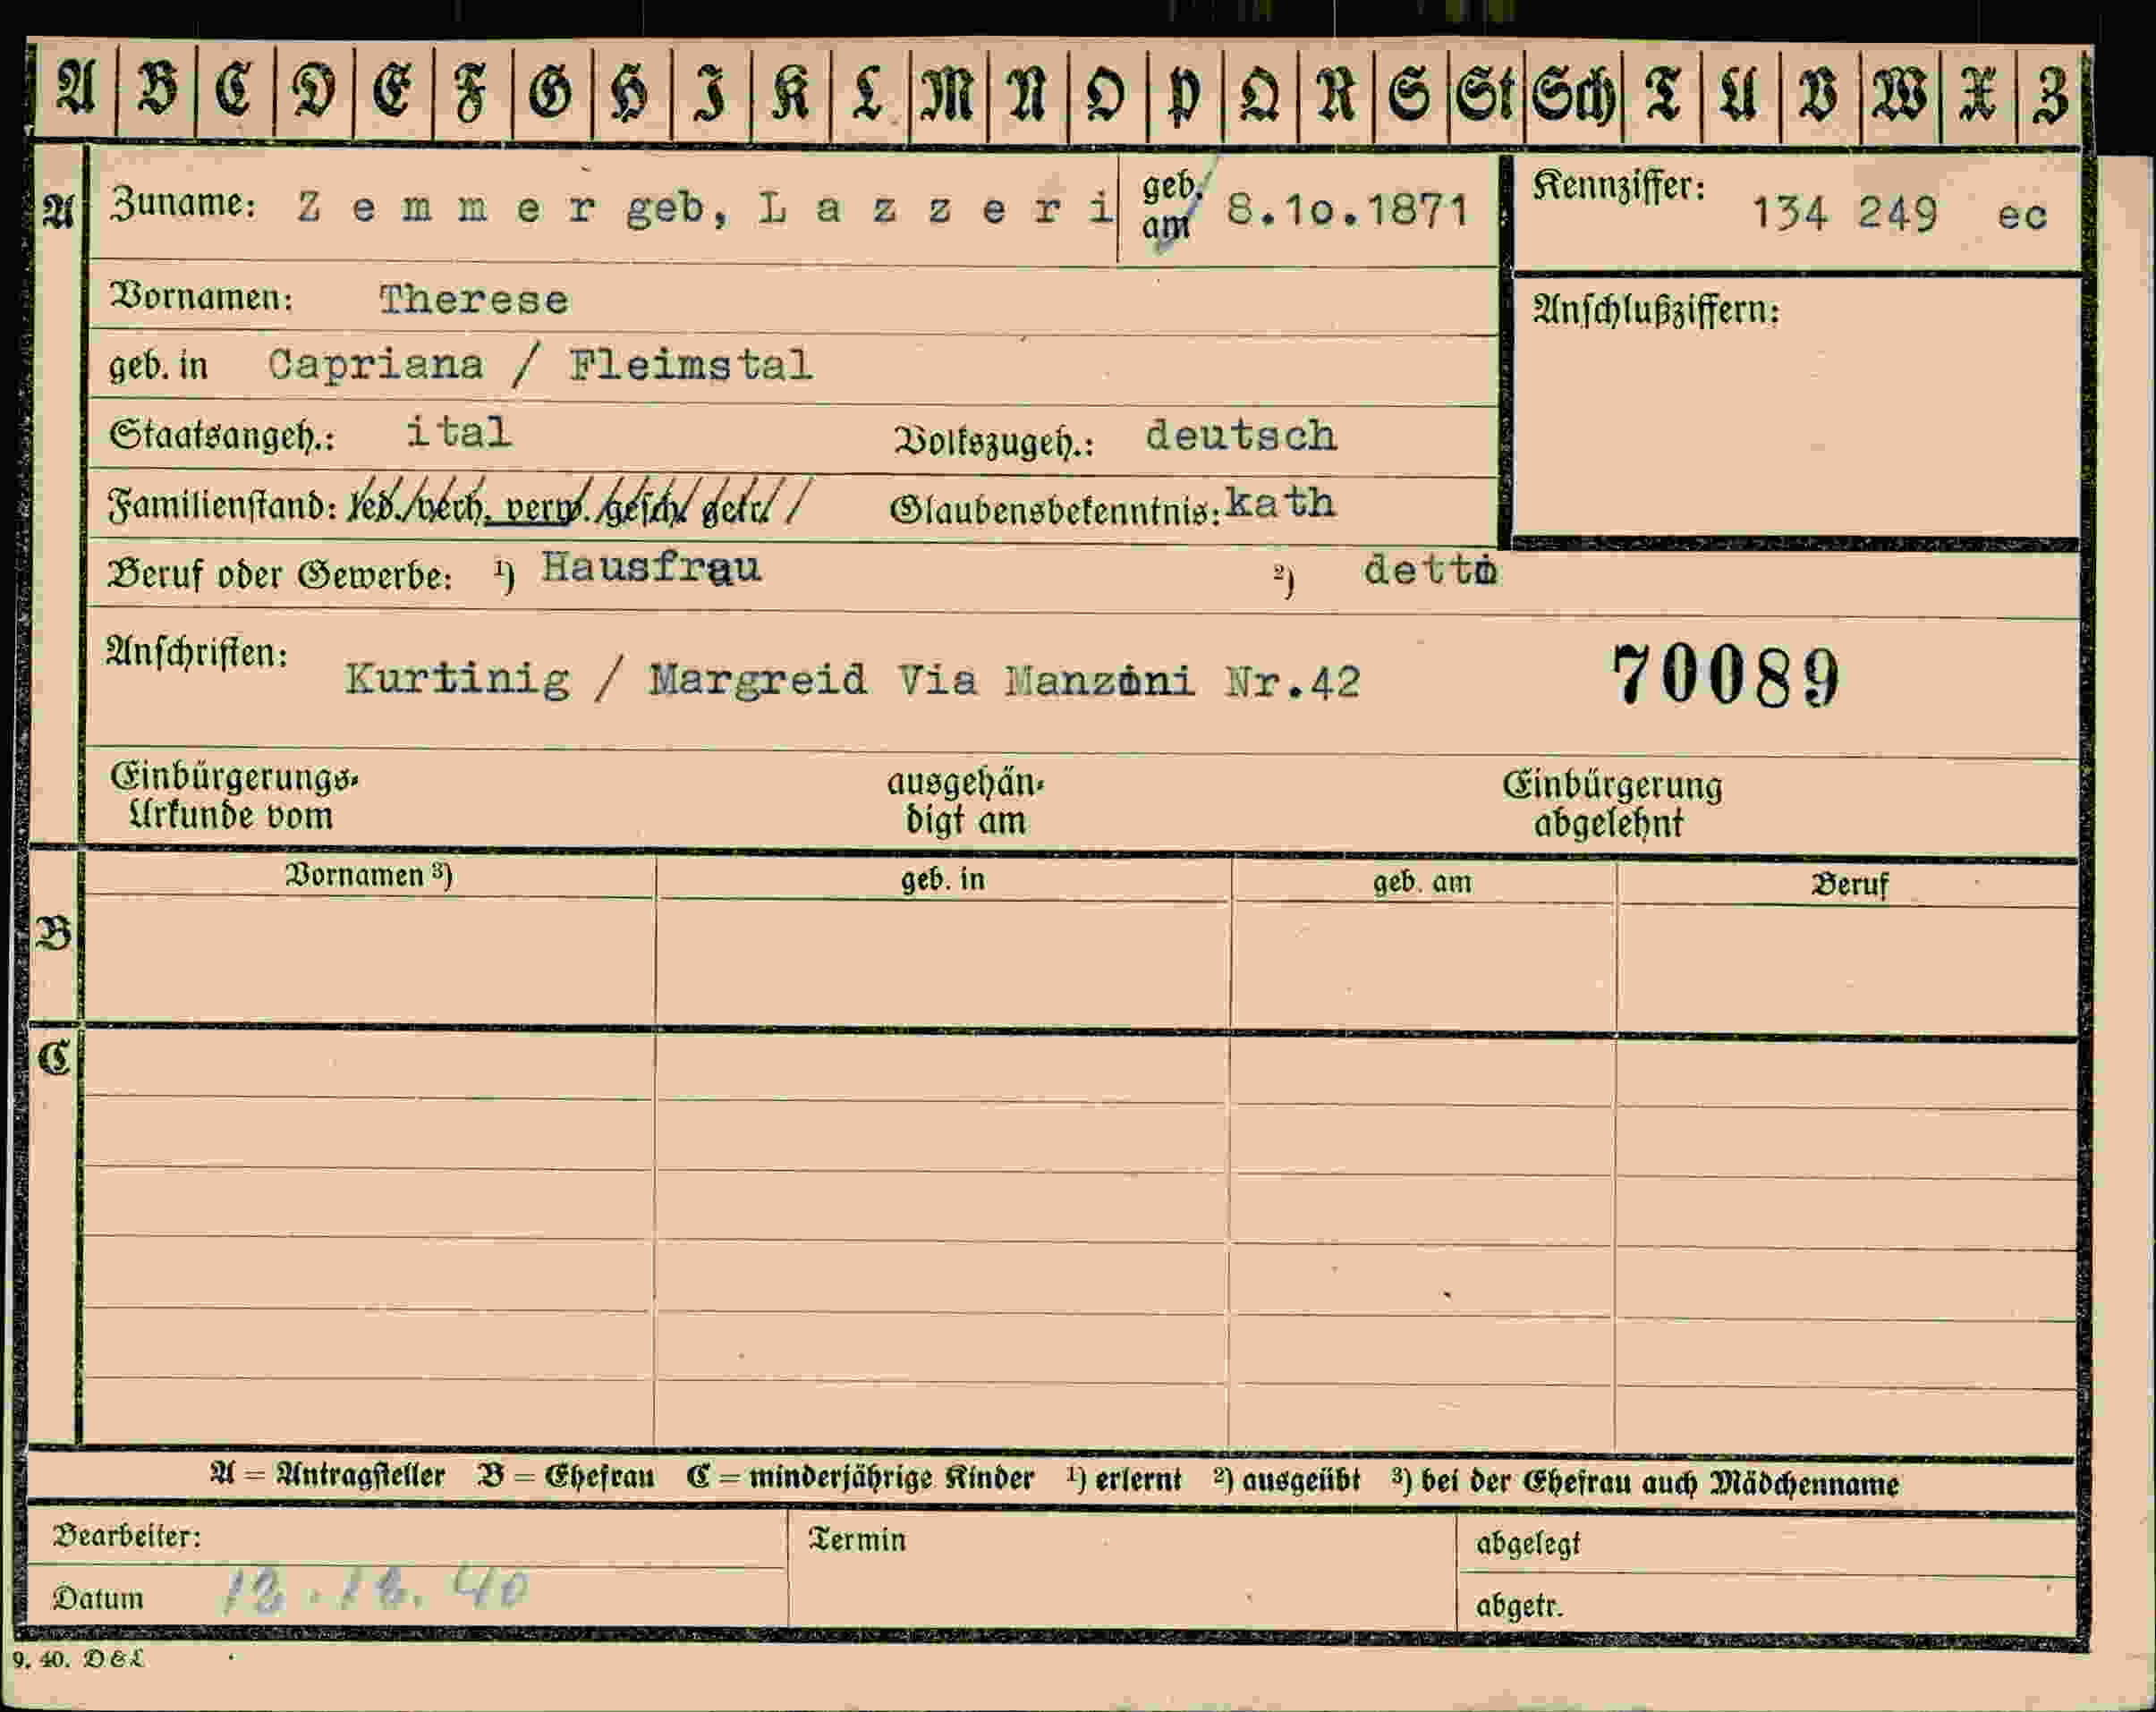 A B C D E F G H I K L M N O P Q R S St Sch T U V W X Z
A Zuname: Zemmer geb, Lazzeri geb. am 8.1o.1871 Kennziffer: 134 249 ec
Vornamen: Therese Anschlußziffern:
geb. in Capriana / Fleimstal
Staatsangeh.: ital Volkszugeh.: deutsch
Familienstand: led./verh. verw. /gesch/ getr/ / Glaubensbekenntnis: kath
Beruf oder Gewerbe: 1) Hausfrau 2) detto
Anschriften: Kurtinig / Margreid Via Manzoni Nr.42 70089
Einbürgerungs- ausgehän- Einbürgerung
Urkunde vom digt am abgelehnt
Vornamen 3) geb. in geb. am Beruf
B
C
A = Antragsteller B = Ehefrau C = minderjährige Kinder 1) erlernt 2) ausgeübt 3) bei der Ehefrau auch Mädchenname
Bearbeiter: Termin abgelegt
Datum abgetr.
9. 40. D & L